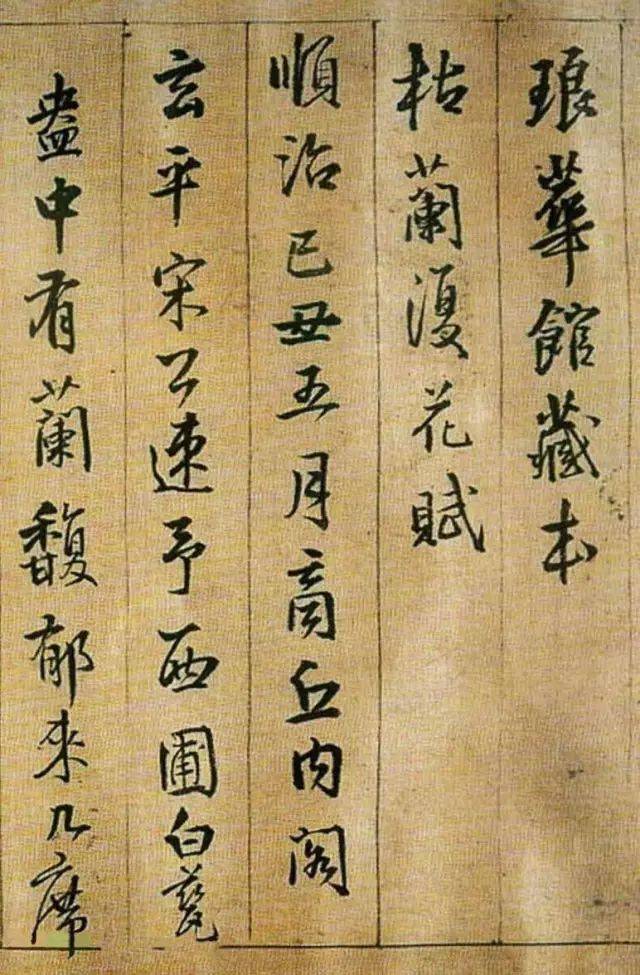 琅華館藏本
枯蘭復花賦
順治己丑五月商丘內閣
玄平宋公速予西圃白甆
盎中有蘭馥郁來几席